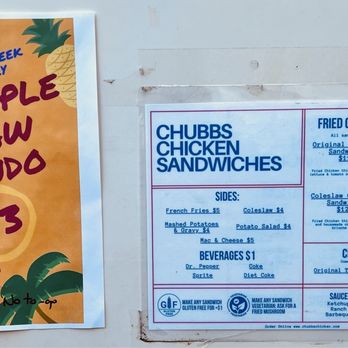 EEK
PLE
W
NDO
3
No to-go
CHUBBS
CHICKEN
SANDWICHES
SIDES:
French Fries $5
Coleslaw $4
Mashed Potatoes
& Gravy $4
Potato Salad $4
Mac & Cheese $5
BEVERAGES $1
Dr. Pepper
Coke
Sprite
Diet Coke
GF
MAKE ANY SANDWICH
GLUTEN FREE FOR +$1
MAKE ANY SANDWICH
VEGETARIAN: ASK FOR A
FRIED MUSHROOM
FRIED C
All sa
Original
Sandw
$1
Fried Chicken
lettuce & tomato
Coleslaw
Sandw
$12
Fried Chicken
and housemade
brioche
C
Original T
SAUCE
Ketchup
Ranch
Barbeque
Order Online www.chubbschicken.com